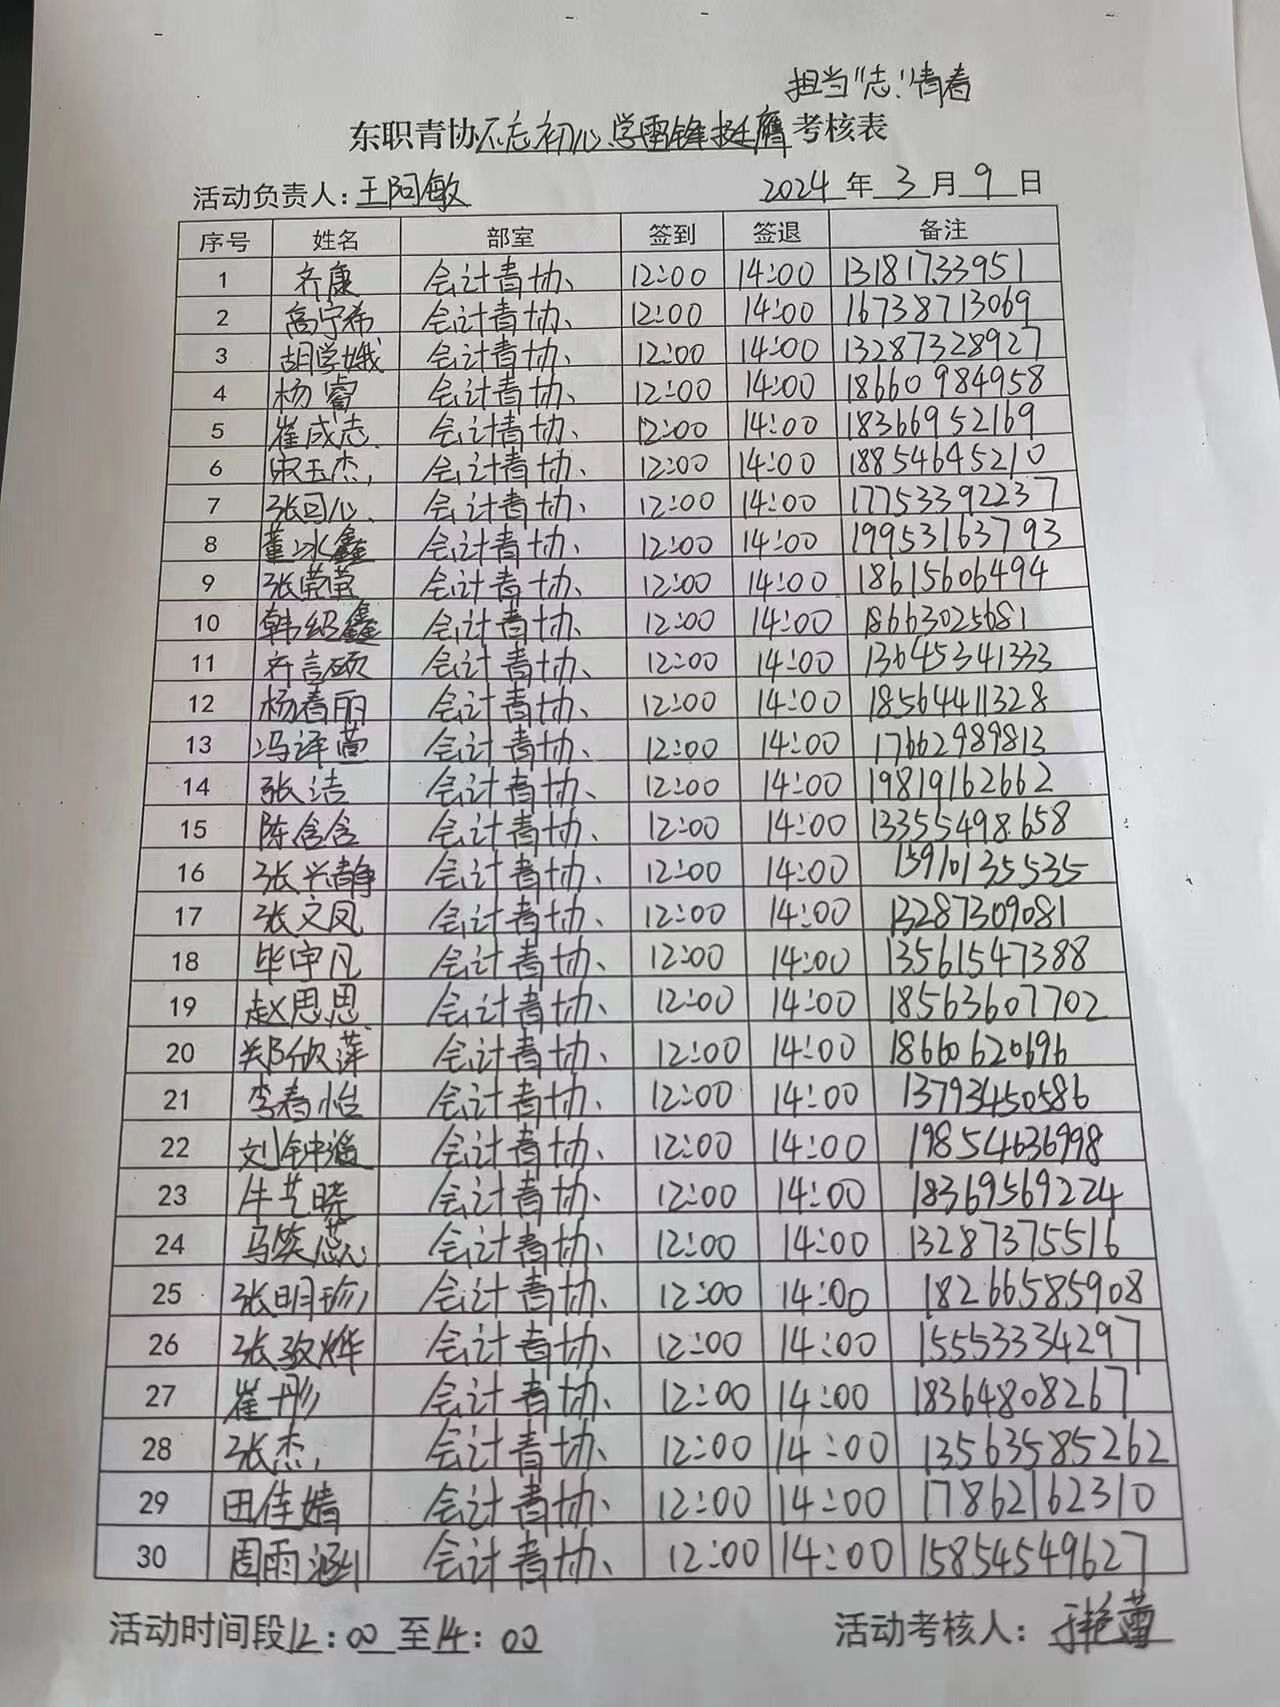 担当"志"青春
东职青协不忘初心,学雷锋挺膺考核表
活动负责人:王阿敏 2024年3月9日
序号 姓名 部室 签到 签退 备注
1 齐康 会计青协、 12:00 14:00 13181733951
2 高宁希 会计青协、 12:00 14:00 16738713069
3 胡学娥 会计青协、 12:00 14:00 13287328927
4 杨睿 会计青协、 12:00 14:00 18660984958
5 崔成志 会计青协、 12:00 14:00 18366952169
6 宋玉杰 会计青协、 12:00 14:00 18854645210
7 张可心 会计青协、 12:00 14:00 17753392237
8 董冰鑫 会计青协、 12:00 14:00 19953163793
9 张莹莹 会计青协、 12:00 14:00 18615606494
10 韩绍鑫 会计青协、 12:00 14:00 18663025681
11 齐言硕 会计青协、 12:00 14:00 13645341333
12 杨春丽 会计青协、 12:00 14:00 18564411328
13 冯译萱 会计青协、 12:00 14:00 17662989813
14 张洁 会计青协、 12:00 14:00 19819162662
15 陈含含 会计青协、 12:00 14:00 13355498658
16 张兴静 会计青协、 12:00 14:00 15910135535
17 张文凤 会计青协、 12:00 14:00 13287309081
18 毕宇凡 会计青协、 12:00 14:00 13561547388
19 赵思思 会计青协、 12:00 14:00 18563607702
20 郑欣萍 会计青协、 12:00 14:00 18660620696
21 李春怡 会计青协、 12:00 14:00 13793450586
22 刘钟 会计青协、 12:00 14:00 19854636998
23 牛艺晓 会计青协、 12:00 14:00 18369569224
24 马笑蕊 会计青协、 12:00 14:00 13287375516
25 张明珍 会计青协、 12:00 14:00 18266585908
26 张敬烨 会计青协、 12:00 14:00 15553334297
27 崔彤 会计青协、 12:00 14:00 18364808267
28 张杰 会计青协、 12:00 14:00 13563585262
29 田佳婧 会计青协、 12:00 14:00 17862162310
30 周雨涵 会计青协、 12:00 14:00 15854549627
活动时间段12:00至14:00 活动考核人: